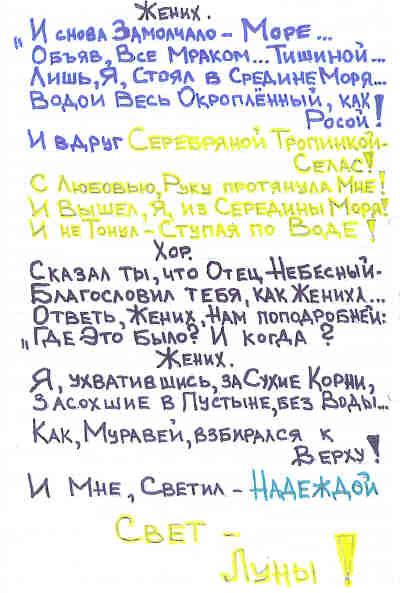 Жених.
„И снова Замолчало - Море...
Объяв, Все Мраком... Тишиной...
Лишь, Я, Стоял в Средине Моря...
Водой Весь Окроплённый, как
Росой!
И вдруг Серебряной Тропинкой-
Селас!
С Любовью, Руку протянула Мне!
И Вышел, Я, из Середины Моря!
И не Тонул - Ступая по Воде!
Хор.
Сказал ты, что Отец Небесный-
Благословил тебя, как Жениха...
Ответь, Жених, Нам поподробней:
„Где Это Было? И когда?
Жених.
Я, ухватившись, за Сухие Корни,
Засохшие в Пустыне, без Воды...
Как, Муравей, взбирался к
Верху!
И Мне, Светил - Надеждой
Свет -
Луны!